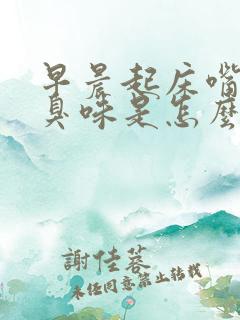 早晨起床嘴
臭味是怎麼
謝佳蓉
未經同意禁止轉載